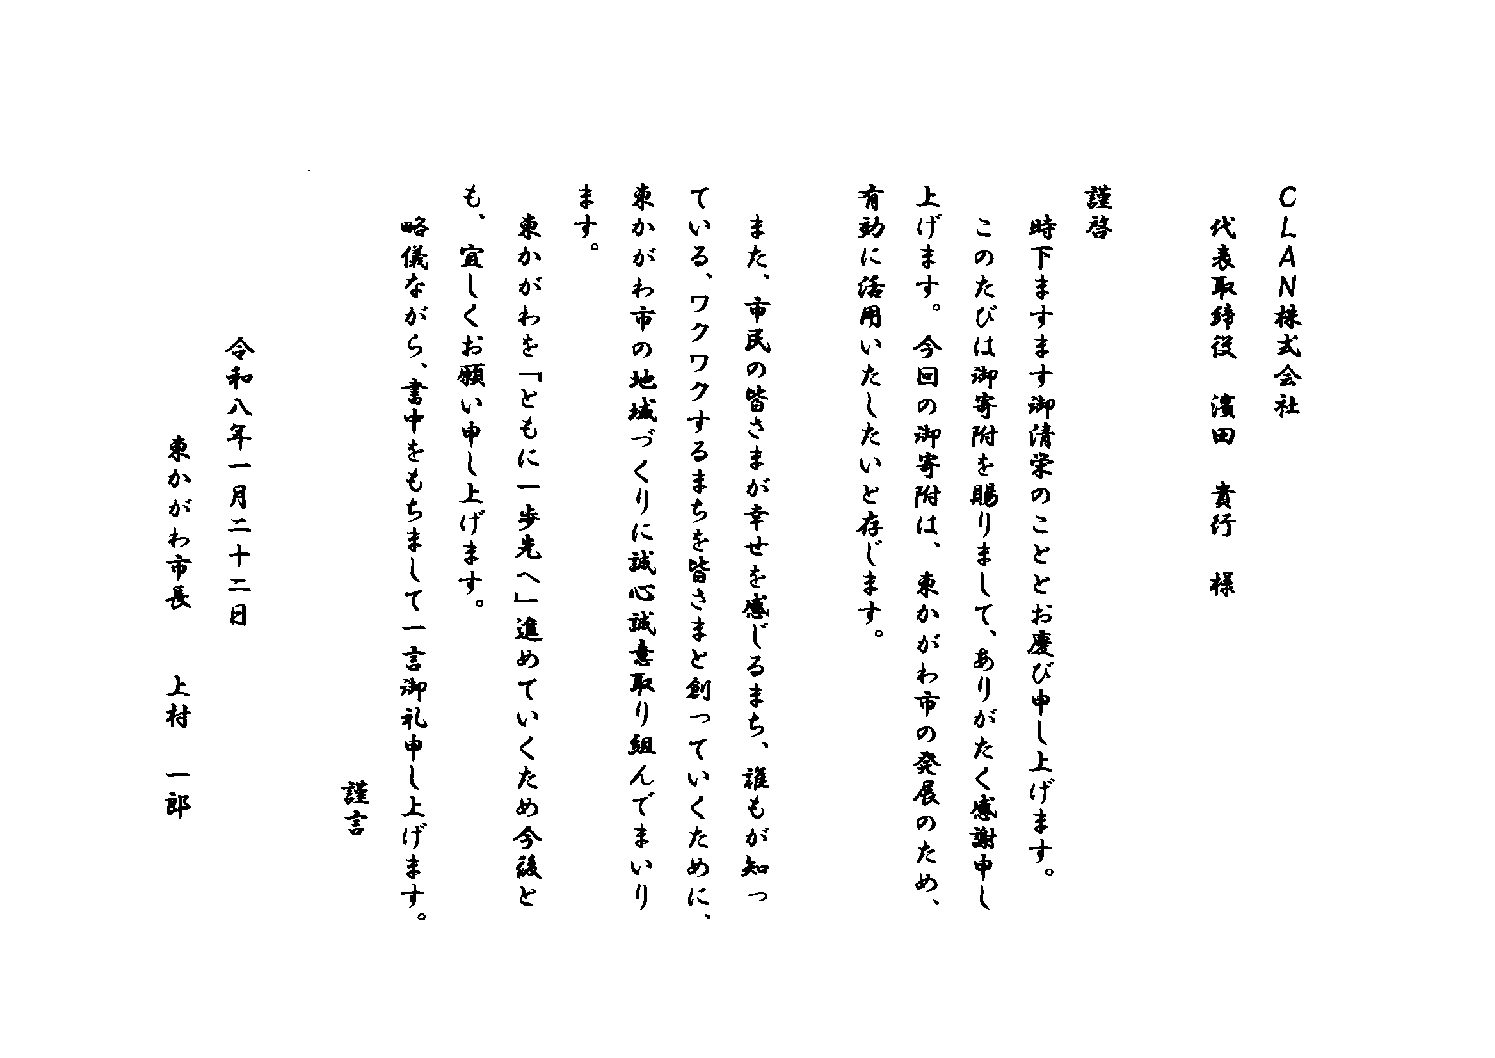 CLAN株式会社
代表取締役　濱田　貴行　様
謹啓
時下ますます御清栄のこととお慶び申し上げます。
このたびは御寄附を賜りまして、ありがたく感謝申し
上げます。今回の御寄附は、東かがわ市の発展のため、
有効に活用いたしたいと存じます。
また、市民の皆さまが幸せを感じるまち、誰もが知っ
ている、ワクワクするまちを皆さまと創っていくために、
東かがわ市の地域づくりに誠心誠意取り組んでまいり
ます。
東かがわを「ともに一歩先へ」進めていくため今後と
も、宜しくお願い申し上げます。
略儀ながら、書中をもちまして一言御礼申し上げます。
謹言
令和八年一月二十二日
東かがわ市長　上村　一郎